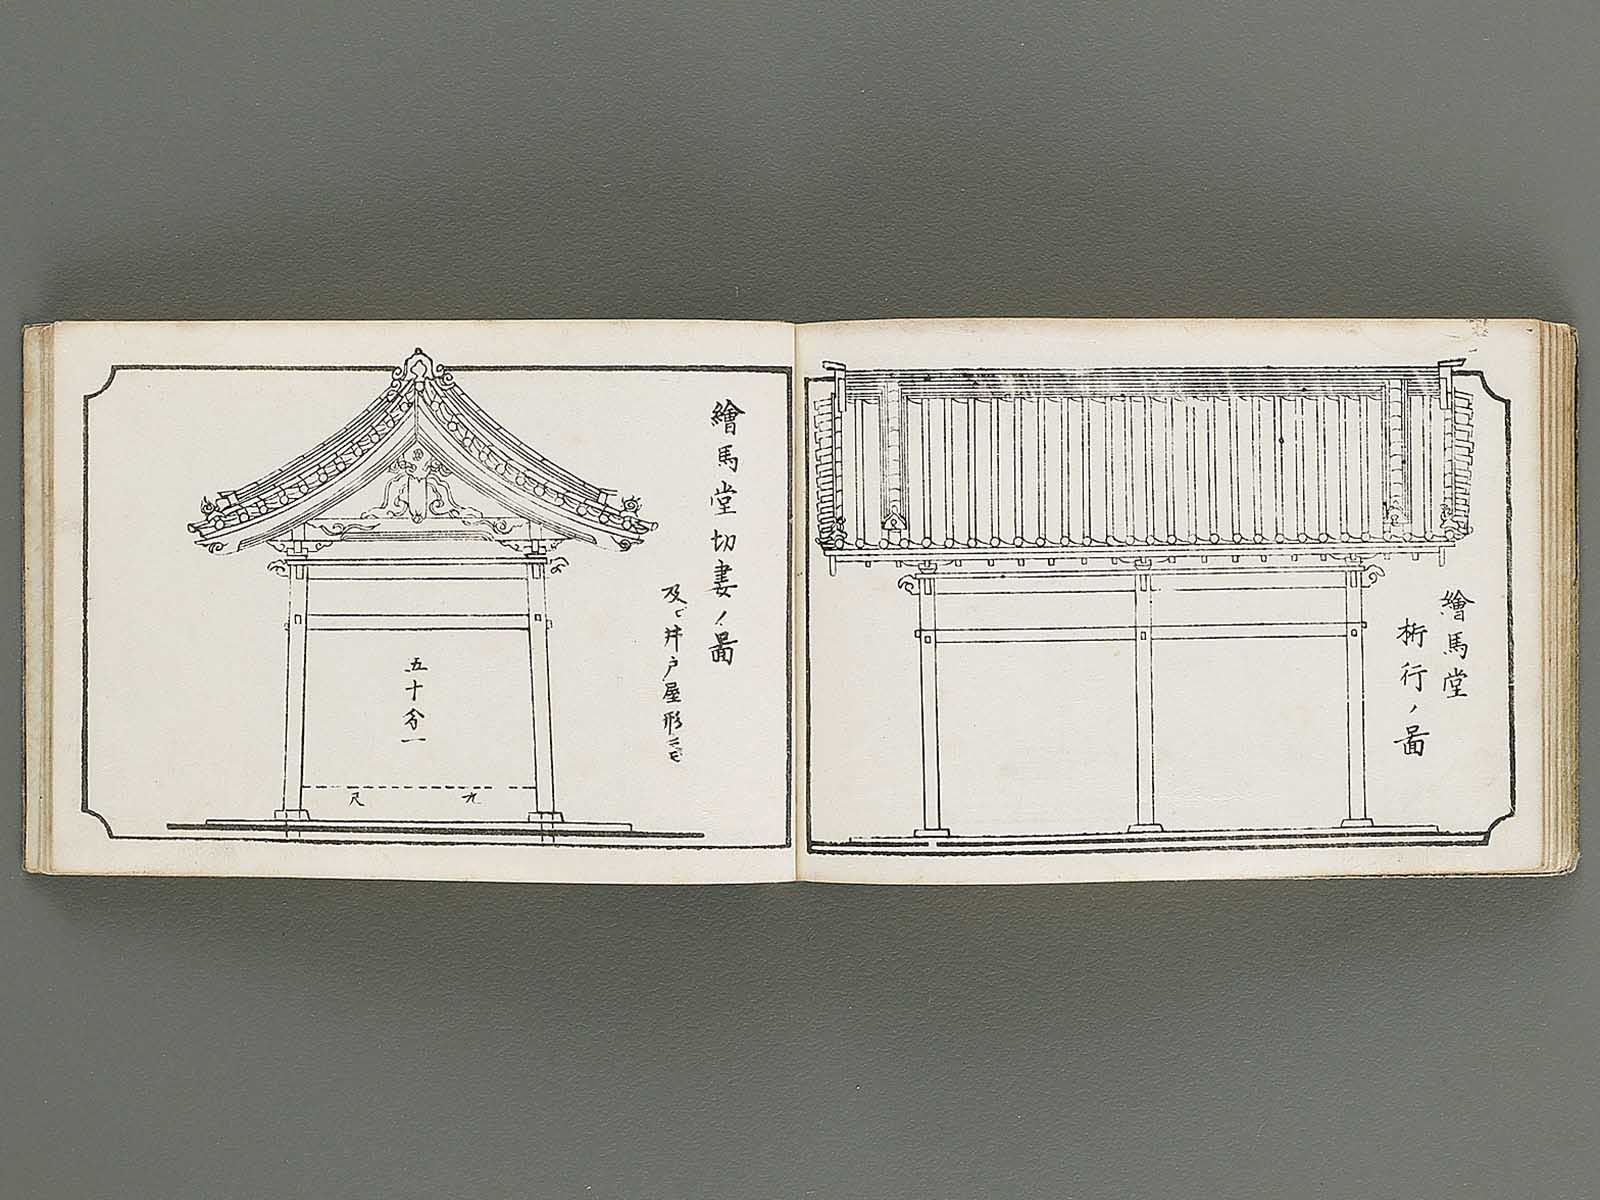 繪馬堂
桁行ノ啚
繪馬堂切妻ノ啚
及ビ井戸屋形ニモ
五十分一
九尺